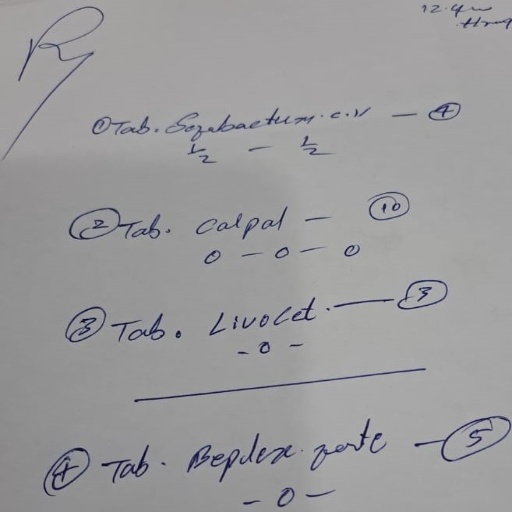 12.4
R
① Tab. Sozubactum. c.v — ④
½ — ½
② Tab. Calpal — ⑩
0 — 0 — 0
③ Tab. Livocet. — ③
- 0 -
④ Tab. Beplex forte — ⑤
- 0 -